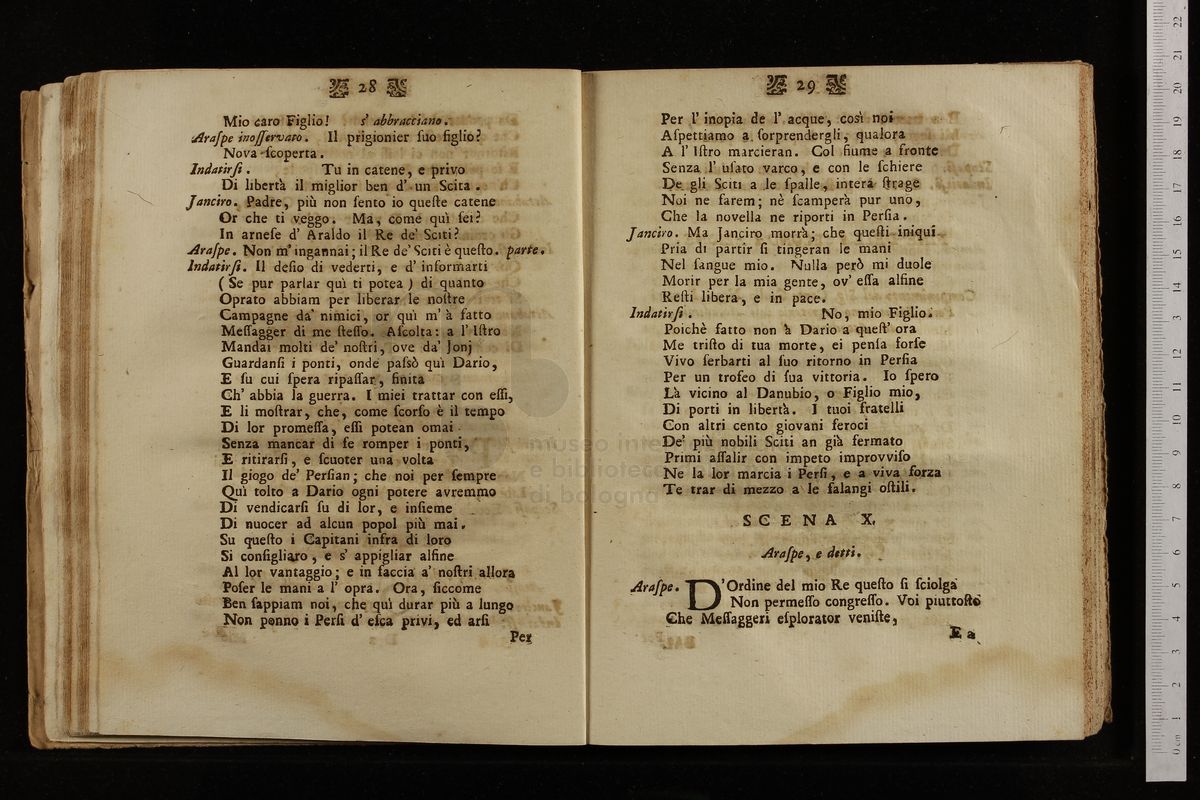 28
Mio caro Figlio! s' abbracciano.
Araſpe inoſſervato. Il prigionier ſuo figlio?
Nova ſcoperta.
Indatirſi. Tu in catene, e privo
Di libertà il miglior ben d' un Scita.
Janciro. Padre, più non ſento io queſte catene
Or che ti veggo. Ma, come quì ſei?
In arneſe d' Araldo il Re de' Sciti?
Araſpe. Non m' ingannai; il Re de' Sciti è queſto. parte.
Indatirſi. Il deſio di vederti, e d' informarti
( Se pur parlar quì ti potea ) di quanto
Oprato abbiam per liberar le noſtre
Campagne da' nimici, or quì m' à fatto
Meſſagger di me ſteſſo. Aſcolta: a l' Iſtro
Mandai molti de' noſtri, ove da' Jonj
Guardanſi i ponti, onde paſsò quì Dario,
E ſu cui ſpera ripaſſar, finita
Ch' abbia la guerra. I miei trattar con eſſi,
E li moſtrar, che, come ſcorſo è il tempo
Di lor promeſſa, eſſi potean omai
Senza mancar di fe romper i ponti,
E ritirarſi, e ſcuoter una volta
Il giogo de' Perſian; che noi per ſempre
Quì tolto a Dario ogni potere avremmo
Di vendicarſi ſu di lor, e inſieme
Di nuocer ad alcun popol più mai.
Su queſto i Capitani infra di loro
Si conſigliaro, e s' appigliar alfine
Al lor vantaggio; e in faccia a' noſtri allora
Poſer le mani a l' opra. Ora, ſiccome
Ben ſappiam noi, che quì durar più a lungo
Non ponno i Perſi d' eſca privi, ed arſi
Per
29
Per l' inopia de l' acque, così noi
Aſpettiamo a ſorprendergli, qualora
A l' Iſtro marcieran. Col fiume a fronte
Senza l' uſato varco, e con le ſchiere
De gli Sciti a le ſpalle, intera ſtrage
Noi ne farem; nè ſcamperà pur uno,
Che la novella ne riporti in Perſia.
Janciro. Ma Janciro morrà; che queſti iniqui
Pria di partir ſi tingeran le mani
Nel ſangue mio. Nulla però mi duole
Morir per la mia gente, ov' eſſa alfine
Reſti libera, e in pace.
Indatirſi. No, mio Figlio.
Poichè fatto non à Dario a queſt' ora
Me triſto di tua morte, ei penſa forſe
Vivo ſerbarti al ſuo ritorno in Perſia
Per un trofeo di ſua vittoria. Io ſpero
Là vicino al Danubio, o Figlio mio,
Di porti in libertà. I tuoi fratelli
Con altri cento giovani feroci
De' più nobili Sciti an già fermato
Primi aſſalir con impeto improvviſo
Ne la lor marcia i Perſi, e a viva forza
Te trar di mezzo a le falangi oſtili.
SCENA X.
Araſpe, e detti.
Araſpe. D'Ordine del mio Re queſto ſi ſciolga
Non permeſſo congreſſo. Voi piuttoſto
Che Meſſaggeri eſplorator veniſte,
E a